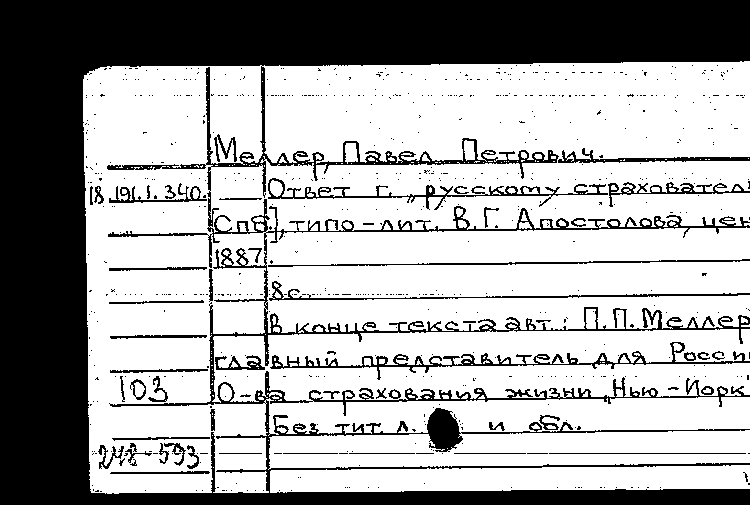 Меллер, Павел Петрович.
18.191.1.340. Ответ г. „русскому страховател
[Спб], типо-лит. В.Г. Апостолова, цен
1887.
8 с.
В конце текста авт.: П.П. Меллер
главный представитель для Росси
103 О-ва страхования жизни „Нью-Йорк"
Без тит. л. и обл.
248-593